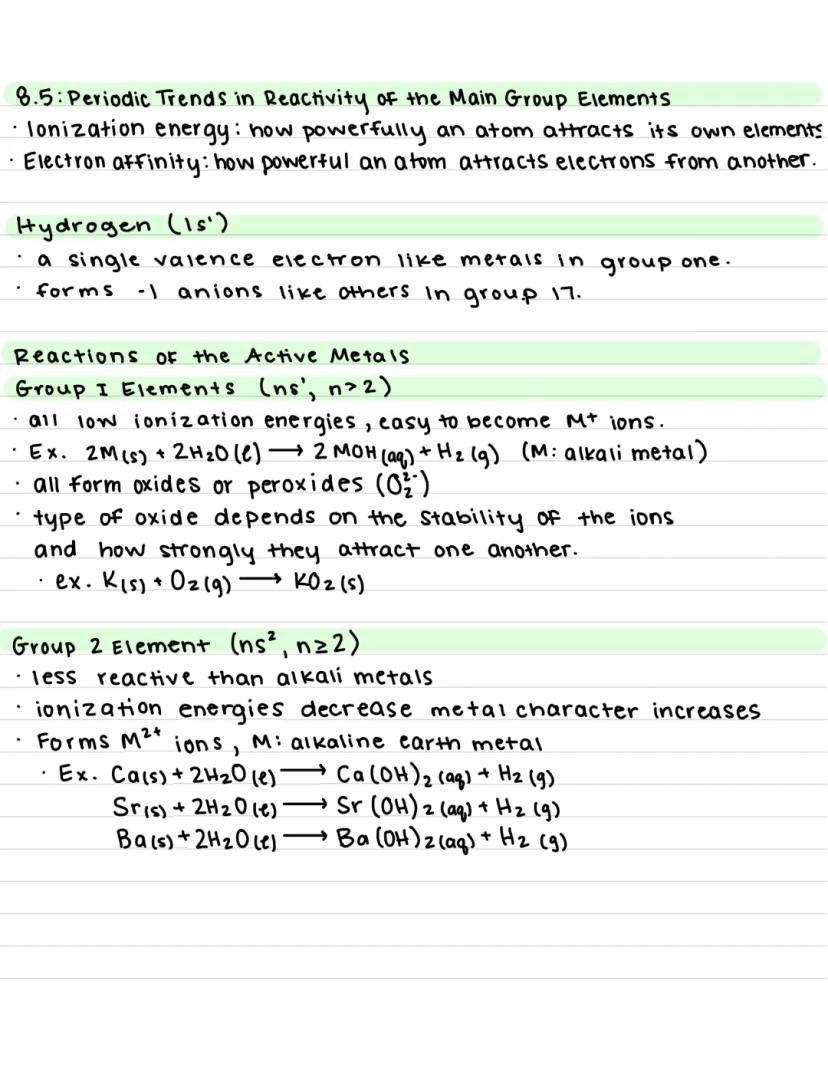 8.5: Periodic Trends in Reactivity of the Main Group Elements
· Ionization energy: how powerfully an atom attracts its own elements
· Electron affinity: how powerful an atom attracts electrons from another.
Hydrogen (1s¹)
· a single valence electron like metals in group one.
· forms -1 anions like others in group 17.
Reactions of the Active Metals
Group I Elements (ns¹, n>2)
· all low ionization energies, easy to become M⁺ ions.
· Ex. 2M(s) + 2H₂O(l) ⟶ 2MOH(aq) + H₂(g) (M: alkali metal)
· all form oxides or peroxides (O₂²⁻)
· type of oxide depends on the stability of the ions
and how strongly they attract one another.
· ex. K(s) + O₂(g) ⟶ KO₂(s)
Group 2 Element (ns², n≥2)
· less reactive than alkali metals
· ionization energies decrease metal character increases
· Forms M²⁺ ions, M: alkaline earth metal
· Ex. Ca(s) + 2H₂O(l) ⟶ Ca(OH)₂(aq) + H₂(g)
Sr(s) + 2H₂O(l) ⟶ Sr(OH)₂(aq) + H₂(g)
Ba(s) + 2H₂O(l) ⟶ Ba(OH)₂(aq) + H₂(g)